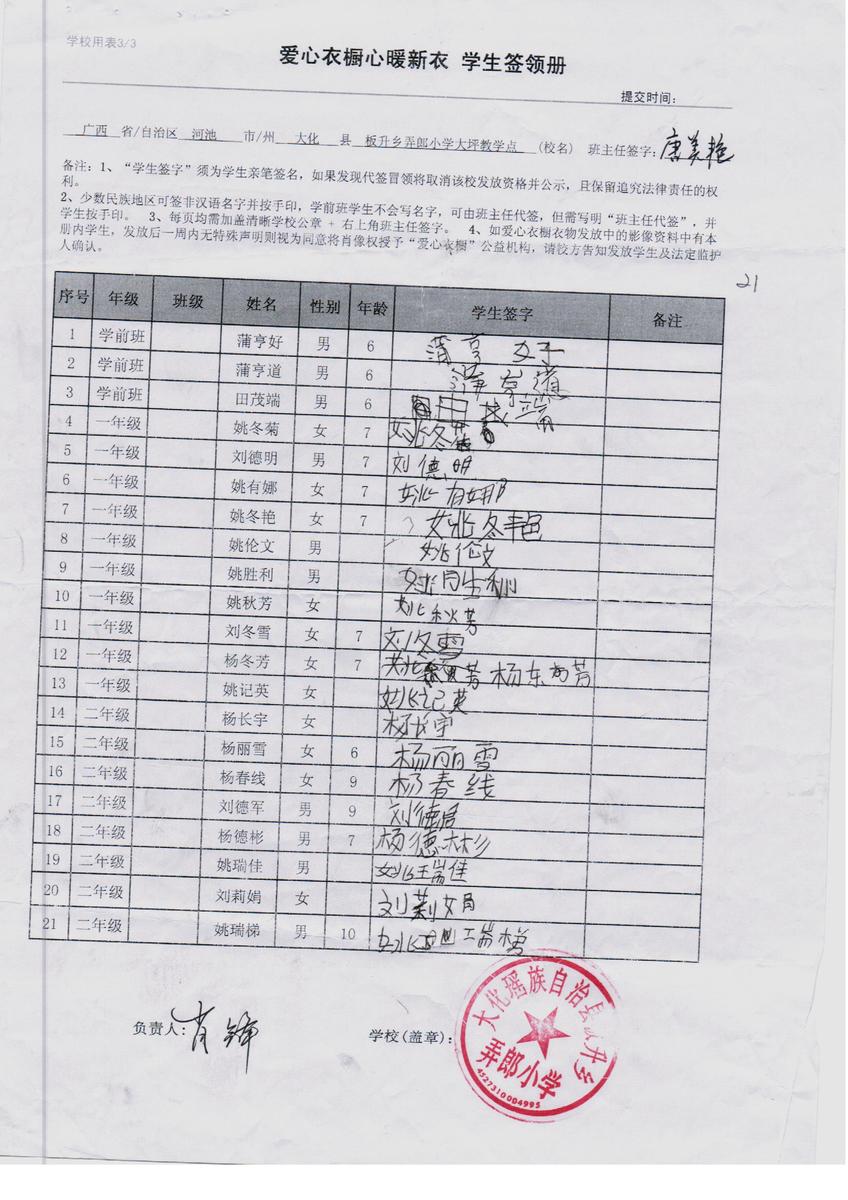 学校用表3/3
爱心衣橱心暖新衣 学生签领册
提交时间:
广西 省/自治区 河池 市/州 大化 县 板升乡弄郎小学大坪教学点 (校名) 班主任签字: 唐美艳
备注: 1、“学生签字”须为学生亲笔签名，如果发现代签冒领将取消该校发放资格并公示，且保留追究法律责任的权
利。
2、少数民族地区可签非汉语名字并按手印，学前班学生不会写名字，可由班主任代签，但需写明“班主任代签”，并
学生按手印。 3、每页均需加盖清晰学校公章 + 右上角班主任签字。 4、如爱心衣橱衣物发放中的影像资料中有本
册内学生，发放后一周内无特殊声明则视为同意将肖像权授予“爱心衣橱”公益机构，请校方告知发放学生及法定监护
人确认。
21
序号 年级 班级 姓名 性别 年龄 学生签字 备注
1 学前班 蒲亨好 男 6 蒲亨好
2 学前班 蒲亨道 男 6 蒲亨道
3 学前班 田茂端 男 6 田茂端
4 一年级 姚冬菊 女 7 姚冬
5 一年级 刘德明 男 7 刘德明
6 一年级 姚有娜 女 7 姚有娜
7 一年级 姚冬艳 女 7 姚冬艳
8 一年级 姚伦文 男 姚伦文
9 一年级 姚胜利 男 姚胜利
10 一年级 姚秋芳 女 姚秋芳
11 一年级 刘冬雪 女 7 刘冬雪
12 一年级 杨冬芳 女 7 芳 杨东芳
13 一年级 姚记英 女 姚记英
14 二年级 杨长宇 女 杨长宇
15 二年级 杨丽雪 女 6 杨丽雪
16 二年级 杨春线 女 9 杨春线
17 二年级 刘德军 男 9 刘德
18 二年级 杨德彬 男 7 杨德彬
19 二年级 姚瑞佳 男 姚瑞佳
20 二年级 刘莉娟 女 刘莉娟
21 二年级 姚瑞梯 男 10 姚瑞梯
负责人: 肖锋
学校(盖章):
大化瑶族自治县板升乡
弄郎小学
4527310004995